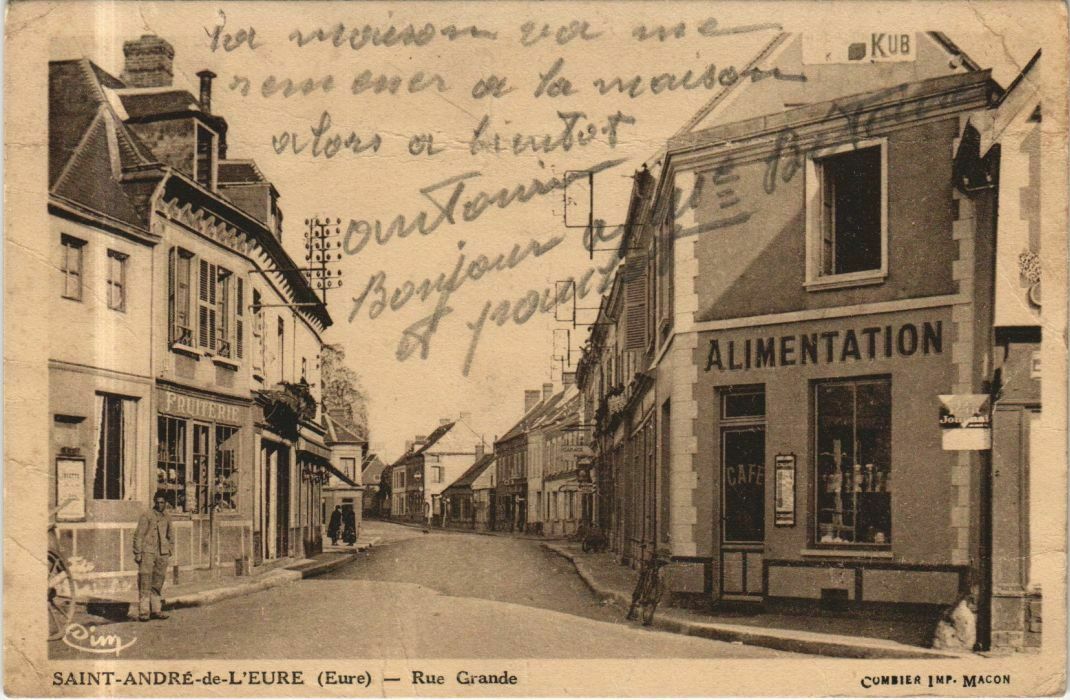 la maison va me
remener a la maison
alors a bientot
antonin
Bonjour a
et pour
KUB
FRUITERIE
ALIMENTATION
CAFE
Journal
GARAGE
Cim
SAINT-ANDRÉ-de-L'EURE (Eure) — Rue Grande
COMBIER IMP. MACON